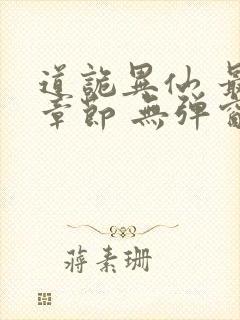 道詭異仙 最
章節 無彈窗
蔣素珊